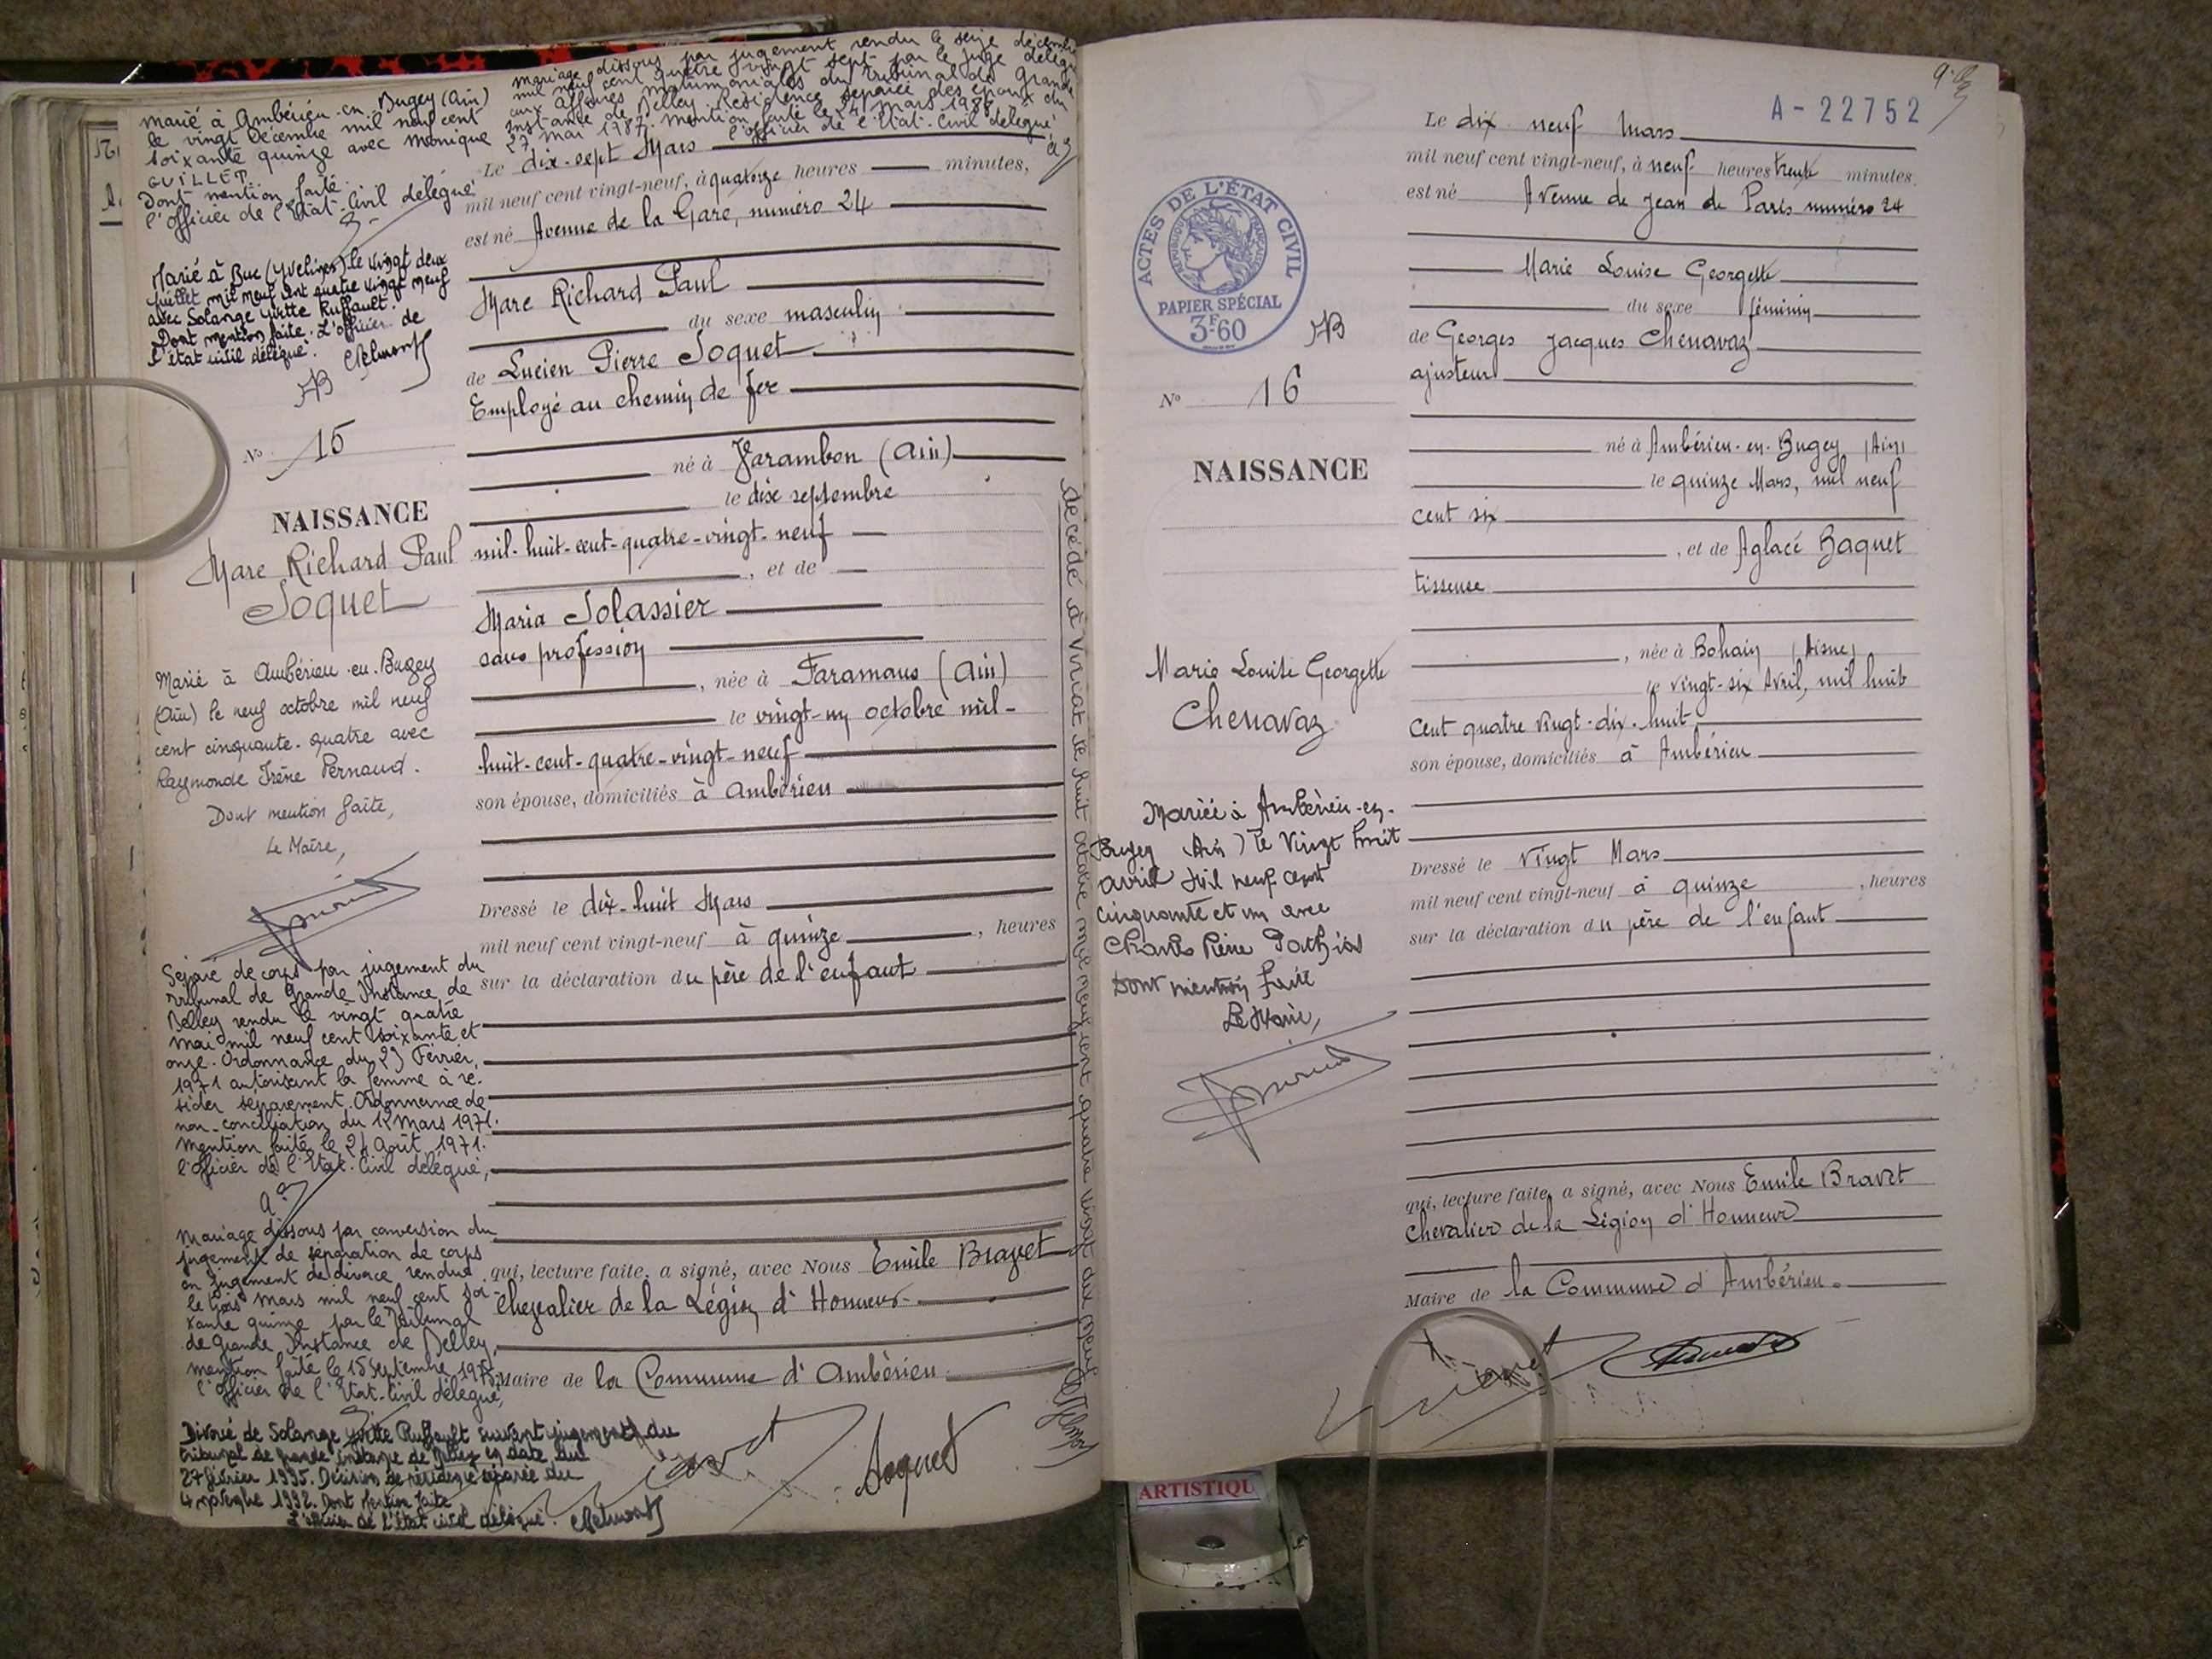 marié à Ambérieu-en-Bugey (Ain)
le vingt décembre mil neuf cent
soixante quinze avec Monique
GUILLET.
Dont mention faite.
l'officier de l'Etat-Civil délégué
mariage dissous par jugement rendu le seize décembre
mil neuf cent quatre vingt sept par le Juge délégué
aux Affaires Matrimoniales du Tribunal de Grande
Instance de Belley. Résidence séparée des époux du
27 mai 1987. Mention faite le 24 mars 1988
l'officier de l'Etat-Civil délégué
Marié à Buc (Yvelines) le vingt deux
juillet mil neuf cent quatre vingt neuf
avec Solange Yvette Ruffault.
Dont mention faite. L'officier de
l'état civil délégué.
N° 15
NAISSANCE
Marc Richard Paul
Joquet
Marié à Ambérieu-en-Bugey
(Ain) le neuf octobre mil neuf
cent cinquante-quatre avec
Raymonde Irène Pernaud.
Dont mention faite,
Le Maire,
Séparé de corps par jugement du
Tribunal de Grande Instance de
Belley rendu le vingt quatre
mai mil neuf cent soixante et
onze. Ordonnance du 29 Février
1971 autorisant la femme à ré-
sider séparement. Ordonnance de
non-conciliation du 12 Mars 1971.
Mention faite le 24 Août 1971.
l'officier de l'Etat-Civil délégué,
Mariage dissous par conversion du
jugement de séparation de corps
en jugement de divorce rendue
le trois mars mil neuf cent soi-
xante quinze par le Tribunal
de Grande Instance de Belley,
mention faite le 15 Septembre 1975
l'officier de l'Etat-Civil délégué,
Divorcé de Solange Yvette Ruffault suivant jugement du
tribunal de grande instance de Belley en date du
27 février 1995. Décision de résidence séparée du
4 novembre 1992. Dont mention faite
L'officier de l'état civil délégué.
Le dix-sept Mars
mil neuf cent vingt-neuf, à quatorze heures minutes,
est né Avenue de la Gare, numéro 24
Marc Richard Paul
du sexe masculin
de Lucien Pierre Joquet
Employé au chemin de fer
né à Varambon (Ain)
le dix septembre
mil-huit-cent-quatre-vingt-neuf
, et de
Maria Jolassier
sans profession
, née à Faramans (Ain)
le vingt-un octobre mil-
huit-cent-quatre-vingt-neuf
son épouse, domiciliés à Ambérieu
Dressé le dix-huit Mars
mil neuf cent vingt-neuf à quinze , heures
sur la déclaration du père de l'enfant
qui, lecture faite, a signé, avec Nous Emile Bravet
Chevalier de la Légion d'Honneur
Maire de la Commune d'Ambérieu
Joquet
décédé à Viriat le huit octobre mil neuf cent quatre vingt dix neuf
A-22752
ACTES DE L'ÉTAT CIVIL
RÉPUBLIQUE FRANÇAISE
PAPIER SPÉCIAL
3F60
N° 16
NAISSANCE
Marie Louise Georgette
Chenavaz
Mariée à Ambérieu-en-
Bugey (Ain) le Vingt huit
avril mil neuf cent
cinquante et un avec
Charles Pierre Pathias
Dont mention faite
Le Maire,
Le dix neuf Mars
mil neuf cent vingt-neuf, à neuf heures trente minutes.
est né Avenue de Jean de Paris numéro 24
Marie Louise Georgette
du sexe féminin
de Georges Jacques Chenavaz
ajusteur
né à Ambérieu-en-Bugey (Ain)
le quinze Mars, mil neuf
cent six
, et de Aglaé Baquet
tisseuse
, née à Bohain (Aisne)
le vingt-six Avril, mil huit
cent quatre vingt-dix-huit
son épouse, domiciliés à Ambérieu
Dressé le vingt Mars
mil neuf cent vingt-neuf à quinze , heures
sur la déclaration du père de l'enfant
qui, lecture faite, a signé, avec Nous Emile Bravet
Chevalier de la Légion d'Honneur
Maire de la Commune d'Ambérieu.
ARTISTIQU